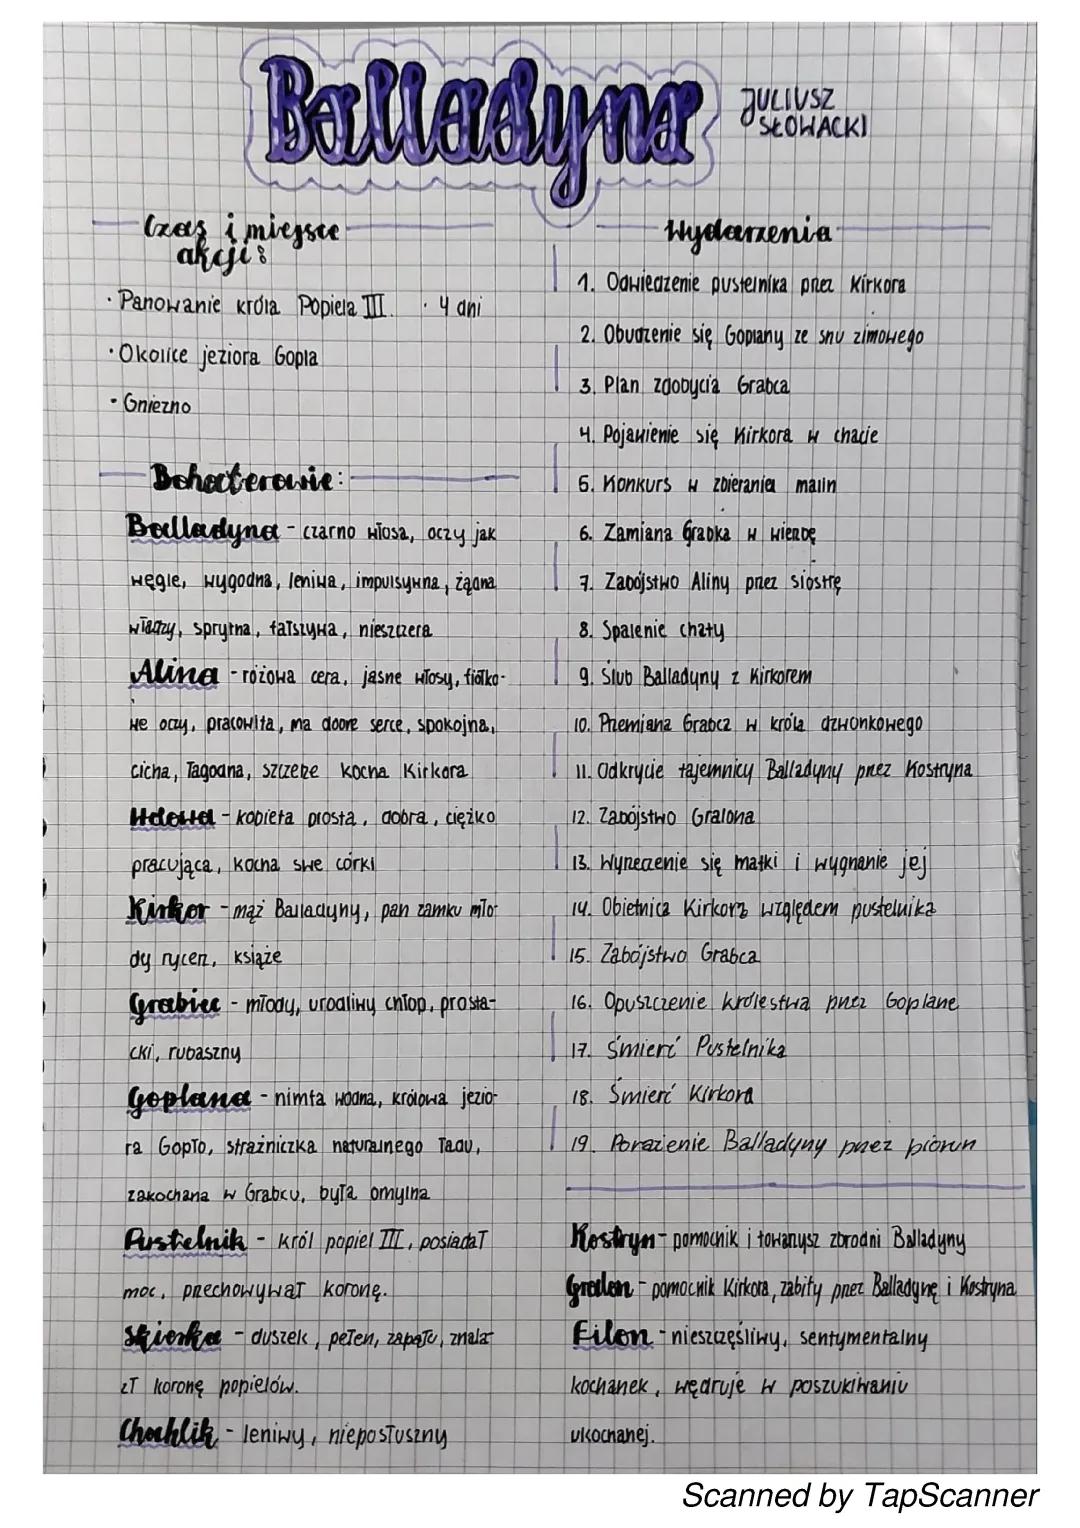 Balladyna
JULIUSZ
SŁOWACKI
Czas i miejsce
akcji:
· Panowanie króla Popiela III. · 4 dni
· Okolice jeziora Gopla
· Gniezno
Bohaterowie:
Balladyna - czarno włosa, oczy jak
węgle, wygodna, leniwa, impulsywna, żądna
władzy, sprytna, fałszywa, nieszczera
Alina - różowa cera, jasne włosy, fiołko-
we oczy, pracowita, ma dobre serce, spokojna,
cicha, łagodna, szczerze kocha Kirkora
Wdowa - kobieta prosta, dobra, ciężko
pracująca, kocha swe córki
Kirkor - mąż Balladyny, pan zamku mło-
dy rycerz, książe
Grabiec - młody, urodliwy chłop, prosta-
cki, rubaszny
Goplana - nimfa wodna, królowa jezio-
ra Gopło, strażniczka naturalnego ładu,
zakochana w Grabcu, była omylna
Pustelnik - król popiel III, posiadał
moc, przechowywał koronę.
Skierka - duszek, pełen, zapału, znala-
zł koronę popielów.
Chochlik - leniwy, nieposłuszny
Wydarzenia
1. Odwiedzenie pustelnika przez Kirkora
2. Obudzenie się Goplany ze snu zimowego
3. Plan zdobycia Grabca
4. Pojawienie się Kirkora w chacie
5. Konkurs w zbierania malin
6. Zamiana Grabka w wierzbę
7. Zabójstwo Aliny przez siostrę
8. Spalenie chaty
9. Ślub Balladyny z Kirkorem
10. Przemiana Grabca w króla dzwonkowego
11. Odkrycie tajemnicy Balladyny przez Kostryna
12. Zabójstwo Gralona
13. Wyrzeczenie się matki i wygnanie jej
14. Obietnica Kirkora względem pustelnika
15. Zabójstwo Grabca
16. Opuszczenie królestwa przez Goplane
17. Śmierć Pustelnika
18. Śmierć Kirkora
19. Porażenie Balladyny przez piorun
Kostryn - pomocnik i towarzysz zbrodni Balladyny
Gralon - pomocnik Kirkora, zabity przez Balladynę i Kostryna
Filon - nieszczęśliwy, sentymentalny
kochanek, wędruje w poszukiwaniu
ukochanej.
Scanned by TapScanner